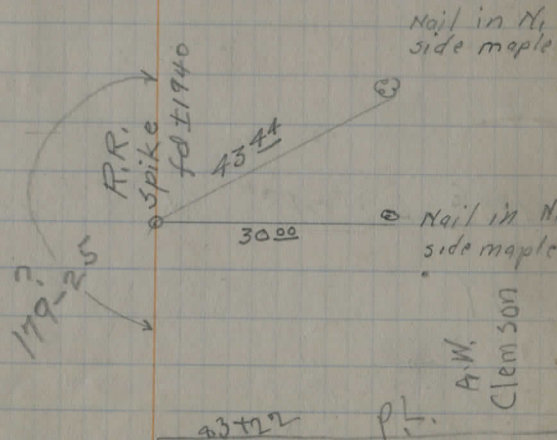 Nail in N.
side maple
R.R.
spike
fd ±1940
43 44
30 00
Nail in N
side maple
?
179-25
A.W.
Clemson
83+22
P.L.